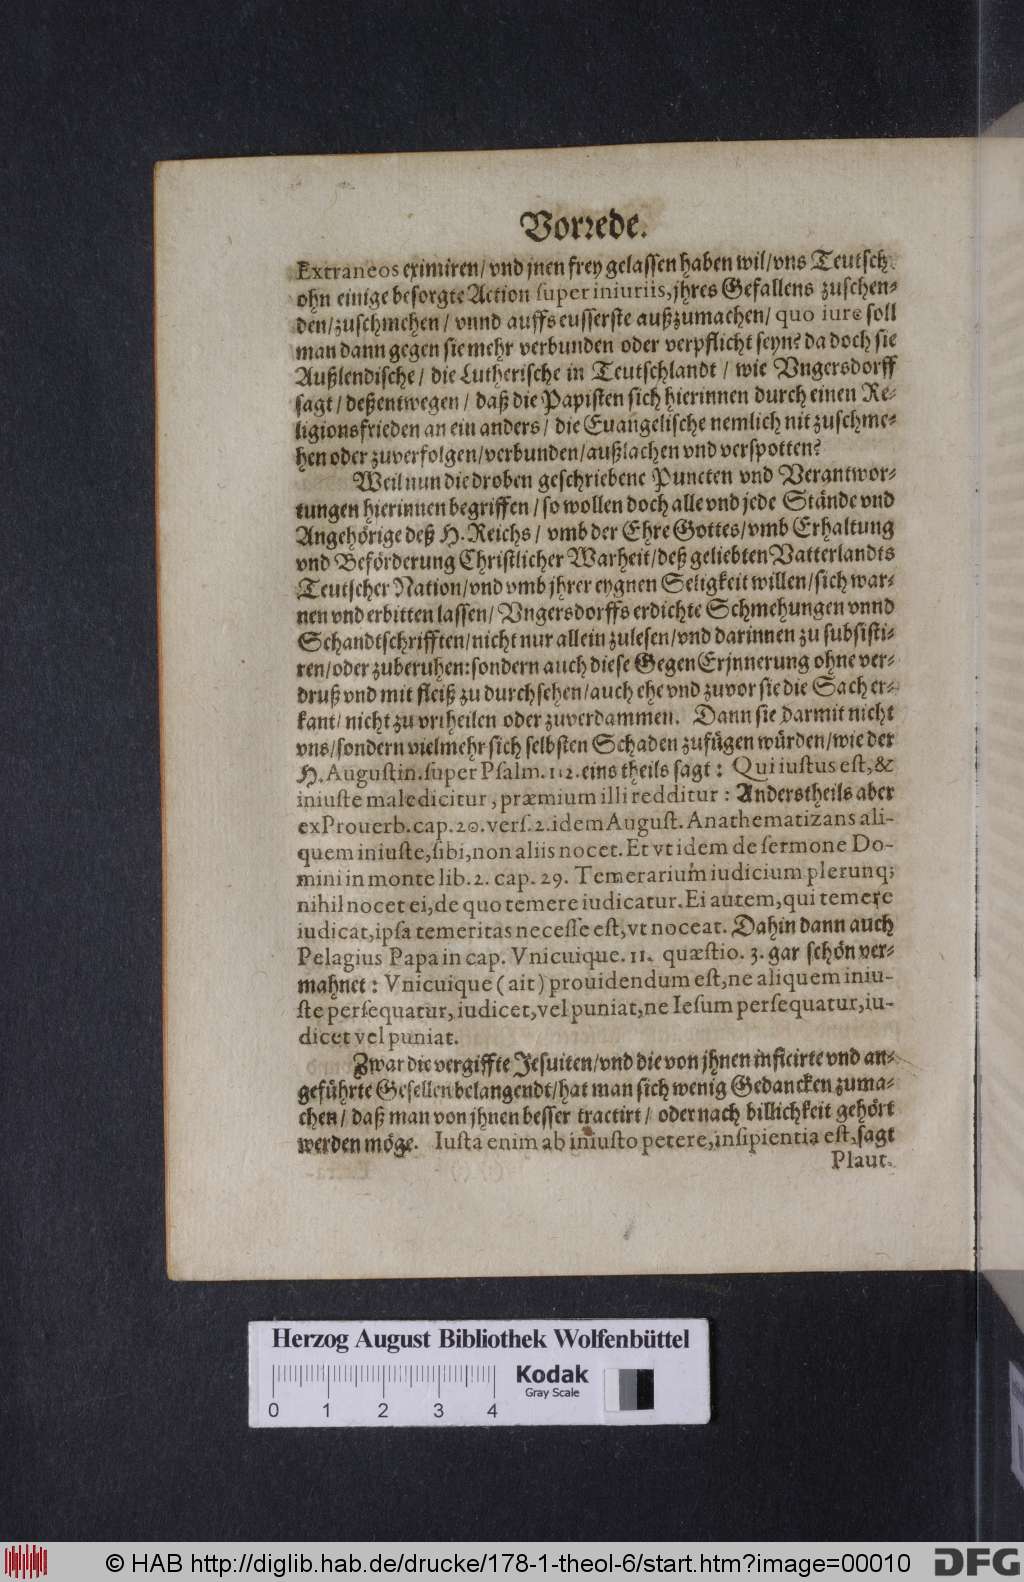 Vorrede.
Extraneos eximiren/ vnd jnen frey gelassen haben wil/ vns Teutsch
ohn einige besorgte Action super iniuriis, jhres Gefallens zuschen-
den/ zuschmehen/ vnnd auffs eusserste außzumachen/ quo iure soll
man dann gegen sie mehr verbunden oder verpflicht seyn? da doch sie
Außlendische/ die Lutherische in Teutschlandt/ wie Vngersdorff
sagt/ deßentwegen/ daß die Papisten sich hierinnen durch einen Re-
ligionsfrieden an ein anders/ die Euangelische nemlich nit zuschme-
hen oder zuverfolgen/ verbunden/ außlachen vnd verspotten?
Weil nun die droben geschriebene Puncten vnd Verantwor-
tungen hierinnen begriffen/ so wollen doch alle vnd jede Stände vnd
Angehörige deß H. Reichs/ vmb der Ehre Gottes/ vmb Erhaltung
vnd Beförderung Christlicher Warheit/ deß geliebten Vatterlandts
Teutscher Nation/ vnd vmb jhrer eygnen Seligkeit willen/ sich war-
nen vnd erbitten lassen/ Vngersdorffs erdichte Schmehungen vnnd
Schandtschrifften/ nicht nur allein zulesen/ vnd darinnen zu subsisti-
ren/ oder zuberuhen: sondern auch diese GegenErjnnerung ohne ver-
druß vnd mit fleiß zu durchsehen/ auch ehe vnd zuvor sie die Sach er-
kant/ nicht zu vrtheilen oder zuverdammen. Dann sie darmit nicht
vns/ sondern vielmehr sich selbsten Schaden zufügen würden/ wie der
H. Augustin. super Psalm. 112. eins theils sagt: Qui iustus est, &
iniuste maledicitur, præmium illi redditur: Anderstheils aber
ex Prouerb. cap. 20. vers. 2. idem August. Anathematizans ali-
quem iniuste, sibi, non aliis nocet. Et vt idem de sermone Do-
mini in monte lib. 2. cap. 29. Temerarium iudicium plerunq;
nihil nocet ei, de quo temere iudicatur. Ei autem, qui temere
iudicat, ipsa temeritas necesse est, vt noceat. Dahin dann auch
Pelagius Papa in cap. Vnicuique. 11. quæstio. 3. gar schön ver-
mahnet: Vnicuique (ait) prouidendum est, ne aliquem iniu-
ste persequatur, iudicet, vel puniat, ne Iesum persequatur, iu-
dicet vel puniat.
Zwar die vergiffte Jesuiten/ vnd die von jhnen inficirte vnd an-
geführte Gesellen belangendt/ hat man sich wenig Gedancken zuma-
chen/ daß man von jhnen besser tractirt/ oder nach billichkeit gehört
werden möge. Iusta enim ab iniusto petere, insipientia est, sagt
Plaut.
Herzog August Bibliothek Wolfenbüttel
Kodak
Gray Scale
0 1 2 3 4
© HAB http://diglib.hab.de/drucke/178-1-theol-6/start.htm?image=00010
DFG